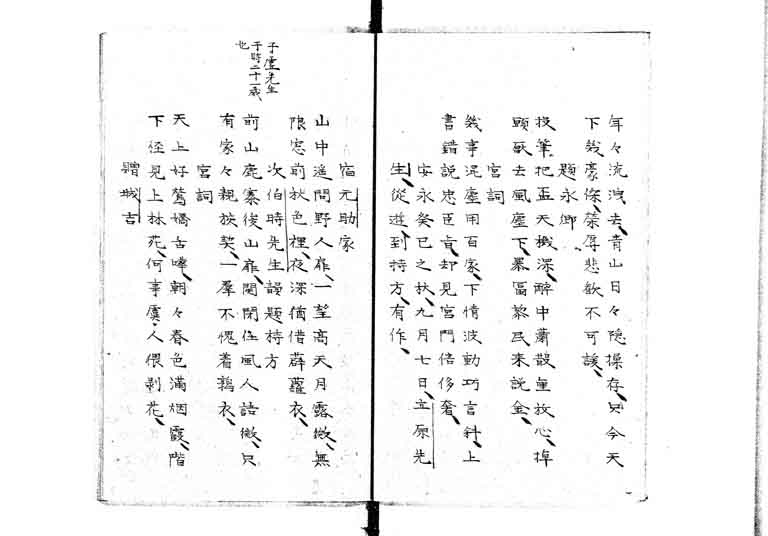 年々流洩去、青山日々隠操存、只今天
下幾豪傑、榮辱悲歓不可諼、
題永卿
投筆把盃天機深、酔中蕭散里放心、掉
頭去風塵下、
宮詞
幾事混塵用百家、下情波動巧言斜、上
書錯説忠臣言、却見宮門倍侈奢、
安永癸巳之秋、九月七日、立原先
生、從遊到持方、有作、
子虚先生
于時二十一歳
也
宿元助家
山中遥聞野人扉、一望高天月露微、無
限窓前秋色裡、夜深猶借薜蘿衣、
次伯時先生韻題持方
前山鹿寨後山扉、閑閉住風人語微、只
有家々親族契、一羣不愧着鶉衣、
宮詞
天上好鶯嬌舌啼、朝々春色満烟霞、階
下径見上林花、何事虞人偎剥花、
贈城吉